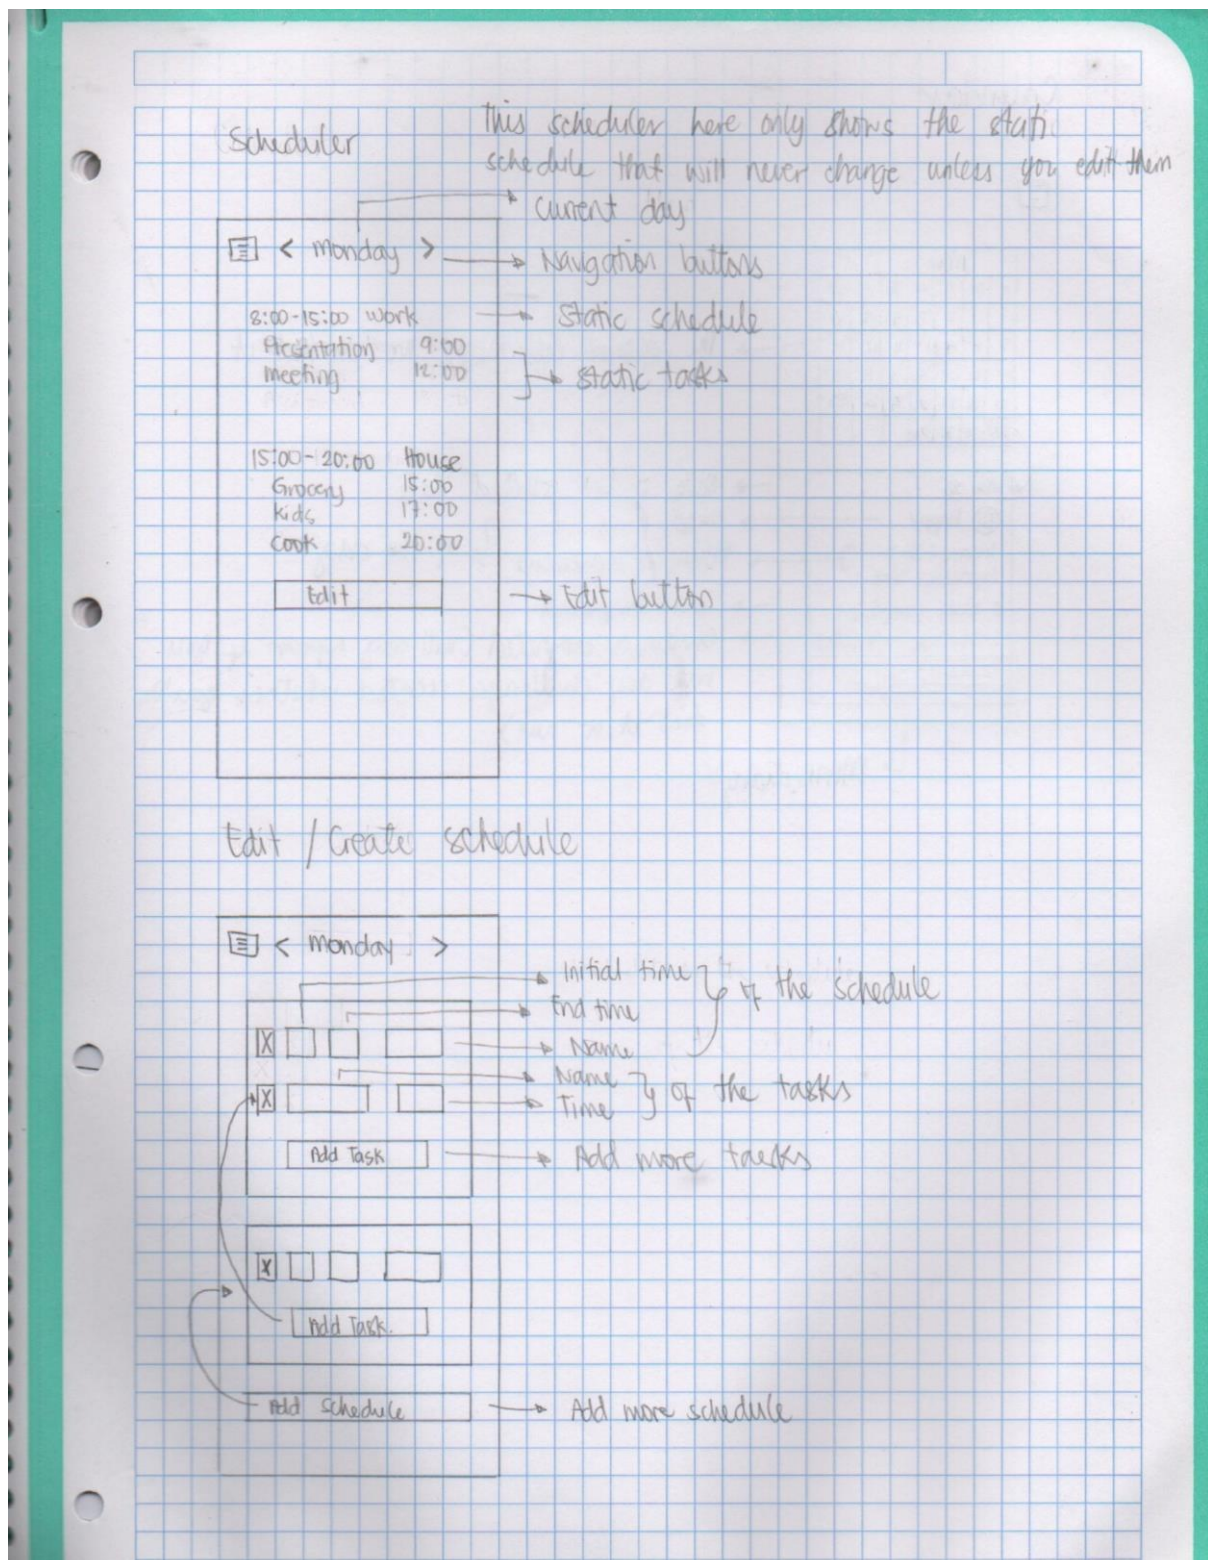 Scheduler
This scheduler here only shows the stati
schedule that will never change unless you edit them
Current day
< monday >
Navigation buttons
8:00-15:00 work
Static schedule
Presentation 9:00
meeting 12:00
Static tasks
15:00-20:00 House
Grocery 15:00
kids 17:00
cook 20:00
Edit
Edit button
Edit / Create schedule
< monday >
Initial time
of the schedule
End time
X
Name
Name
of the tasks
X
Time
Add Task
Add more tasks
X
Add Task.
Add schedule
Add more schedule